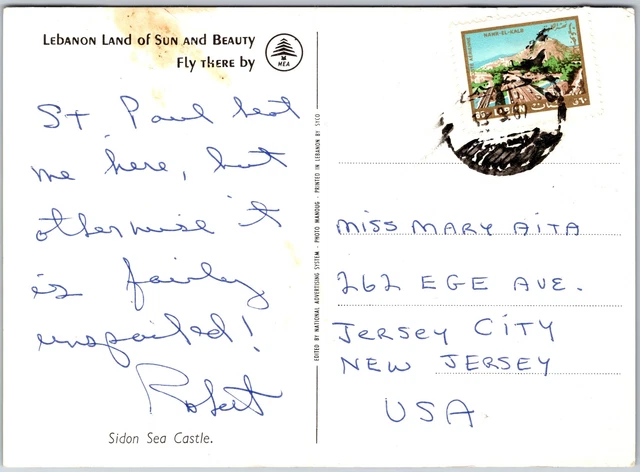 Lebanon Land of Sun and Beauty
Fly there by
MEA
St. Paul beat
me here, but
otherwise it
is fairly
unspoiled!
Robert
Sidon Sea Castle.
EDITED BY NATIONAL ADVERTISING SYSTEM - PHOTO MANOUG - PRINTED IN LEBANON BY SYCO
NAHR-EL-KALB
POSTE AERIENNE
MISS MARY AITA
262 EGE AVE.
JERSEY CITY
NEW JERSEY
USA